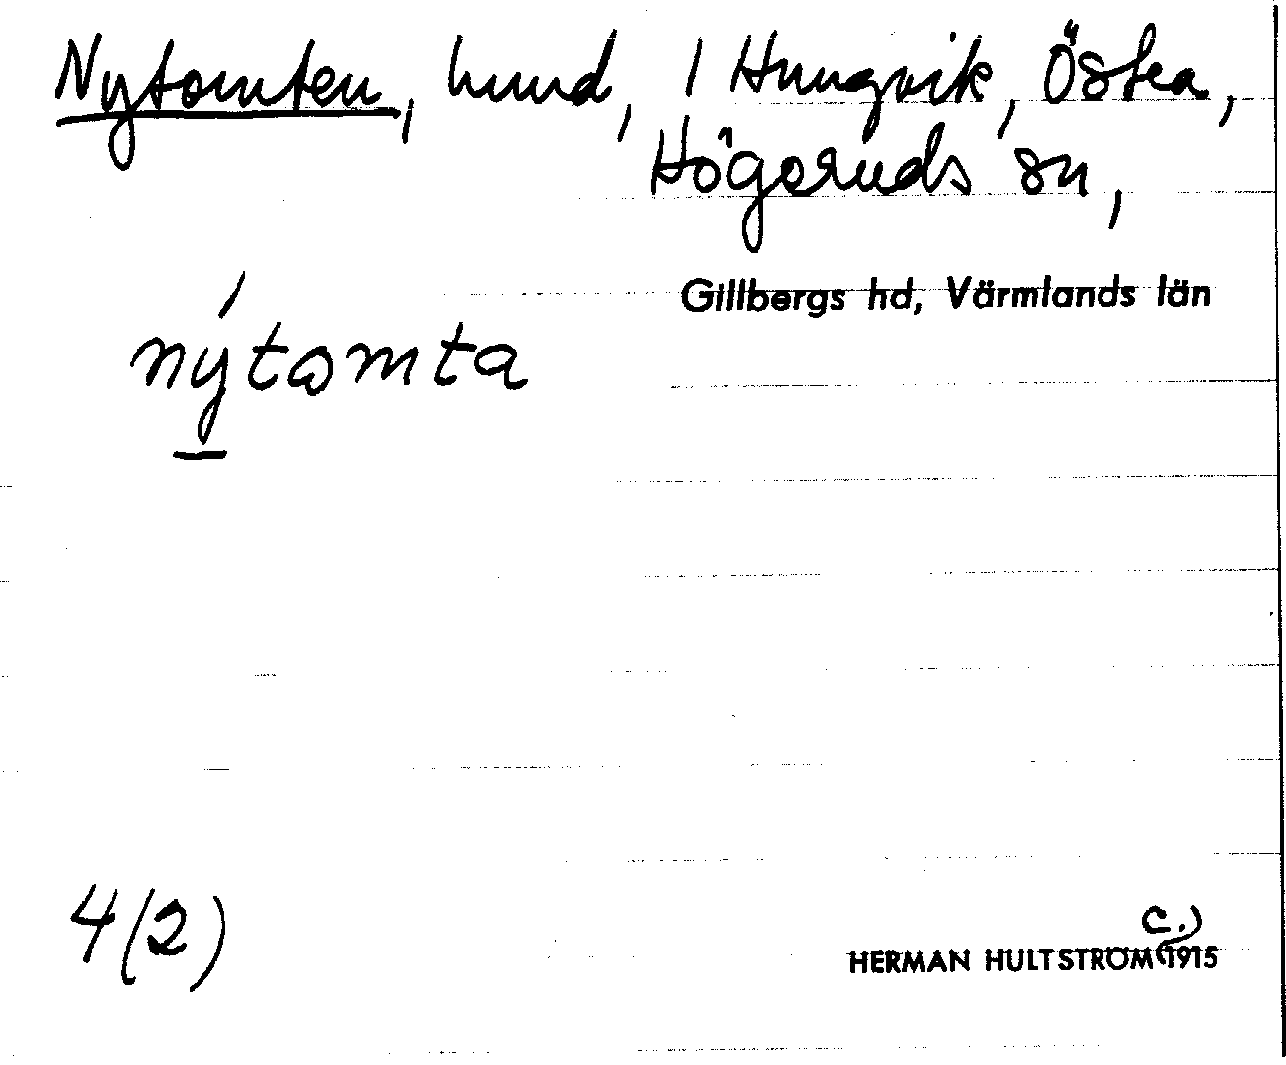 Nytomten, lund, 1 Hungvik, Östra,
Högeruds sn,
Gillbergs hd, Värmlands län
nýtomta
4(2)
c.)
HERMAN HULTSTRÖM 1915